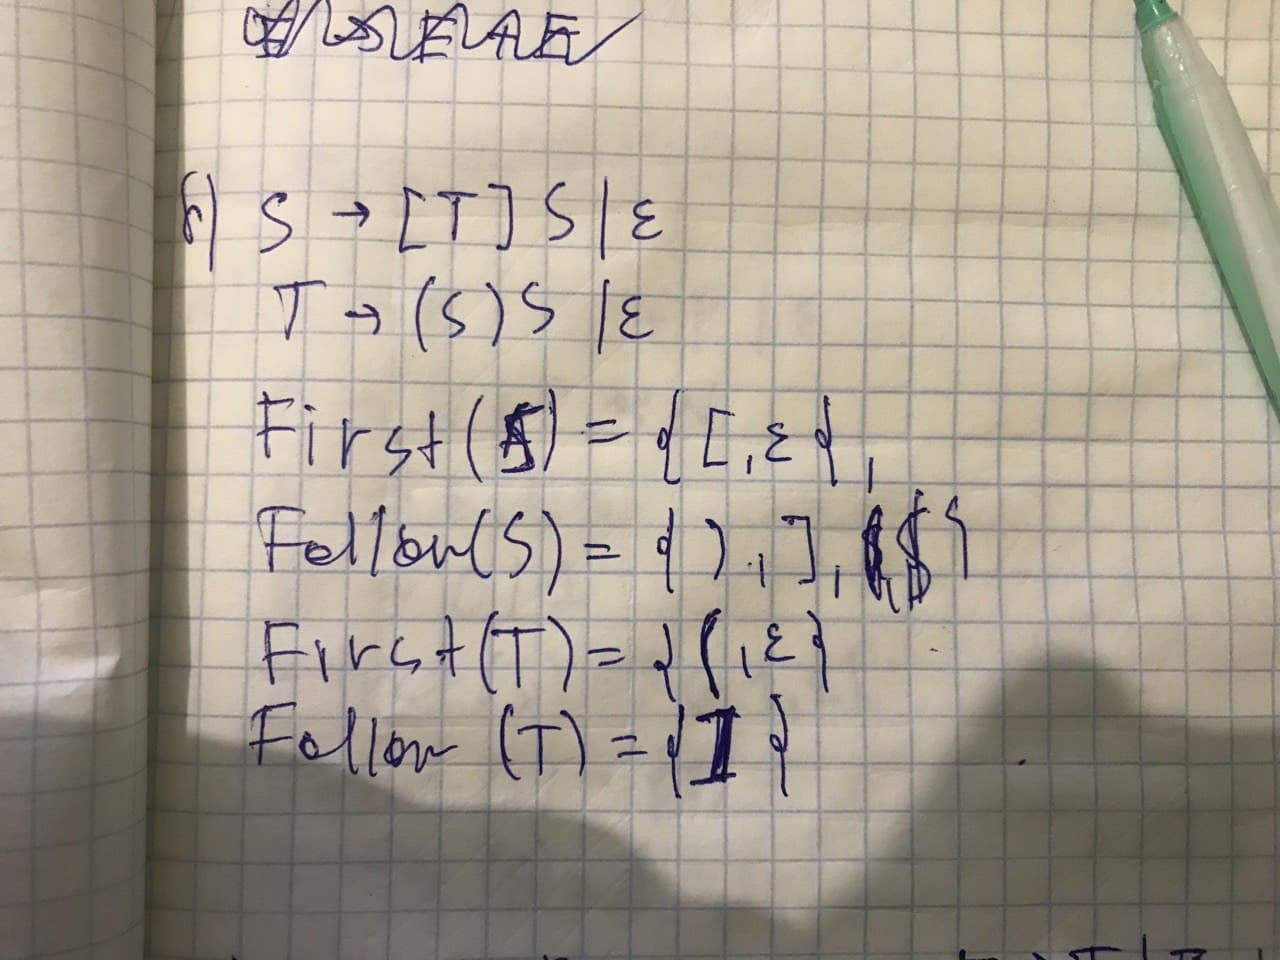 б) S → [T] S | ε
T → (S) S | ε
First(S) = { [, ε },
Follow(S) = { ), ], $ }
First(T) = { (, ε }
Follow (T) = { ] }